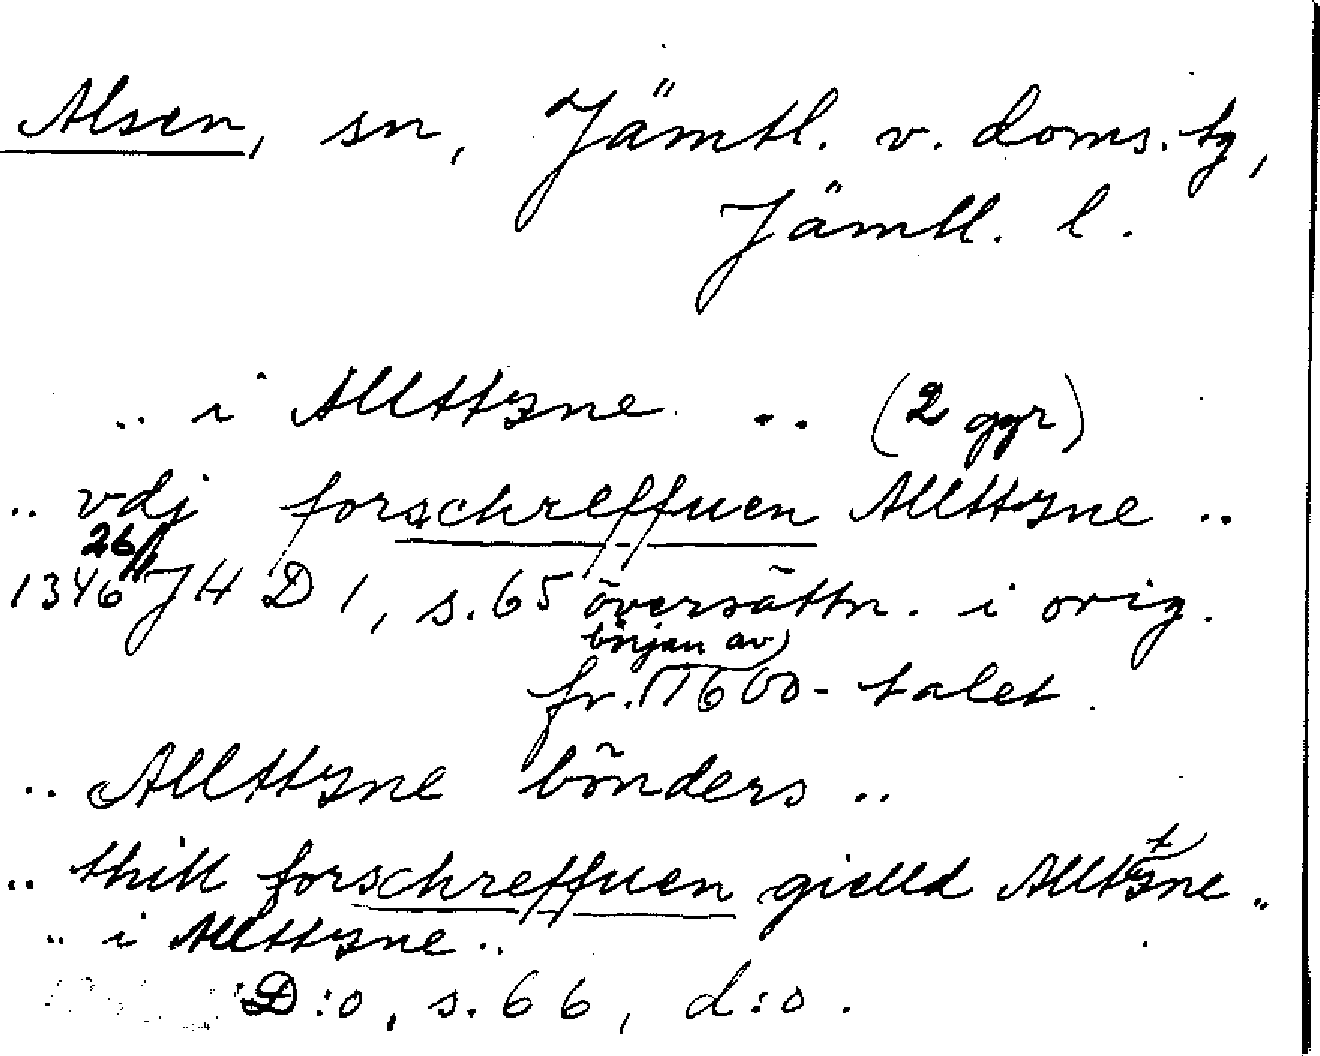 Alsen, sn, Jämtl. v. doms. tg,
Jämtl. l.
.. i Allttzne .. (2 ggr)
.. vdj forschreffuen Allttzne ..
26/11
1346 JHD 1, s. 65 översättn. i orig.
början av
fr. 1600-talet.
.. Allttzne bönders ..
.. thill forschreffuen gielld Allttzne ..
.. i Allttzne ..
D:o, s. 66, d:o.